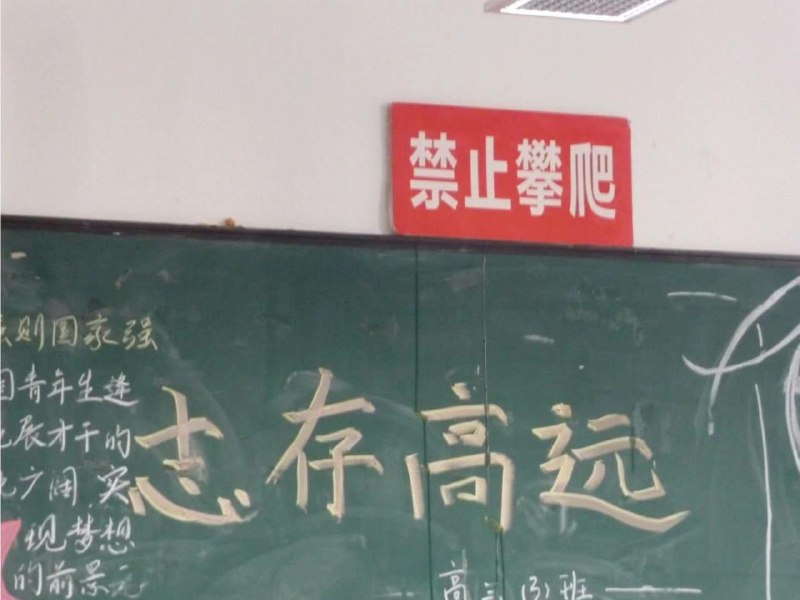 禁止攀爬
则国家强
青年生逢
展才干的
广阔 实
现梦想
的前景
志存高远
高三(3)班